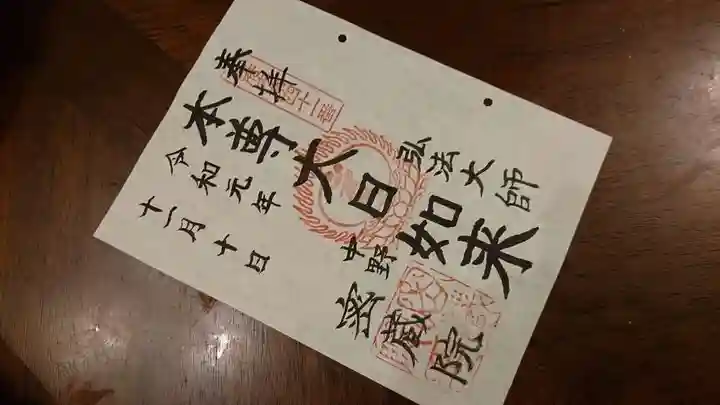 奉拝
弘法大師
本尊大日如来
中野
密蔵院
令和元年
十一月十日
十一番